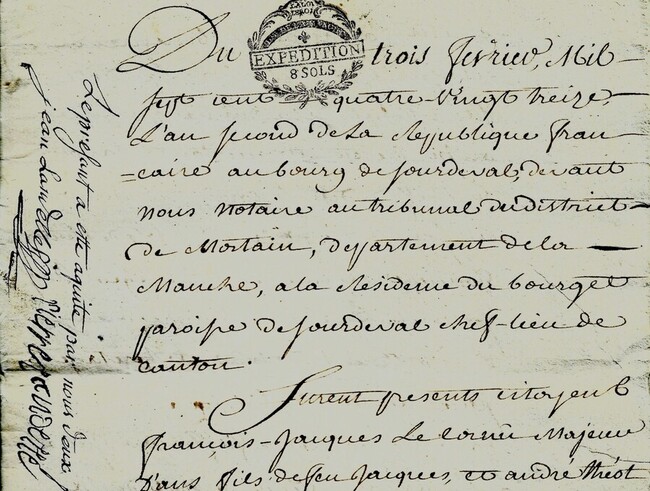 LA LOI
LE ROI
EXPEDITION
8 SOLS
Du trois fevrier, Mil
sept cent quatre-Vingt treize,
L'an second de la Republique fran
=caise au bourg de Sourdeval, devant
nous notaire au tribunal du district
de Mortain, departement de la
Manche, a la Residence du bourg et
paroisse de Sourdeval chef-lieu de
canton.
Furent presents citoyens
françois-Jacques Le Cornu Majeur
D'ans fils de feu Jacques, et andré
Le present a ete aquité par nous deux
jean